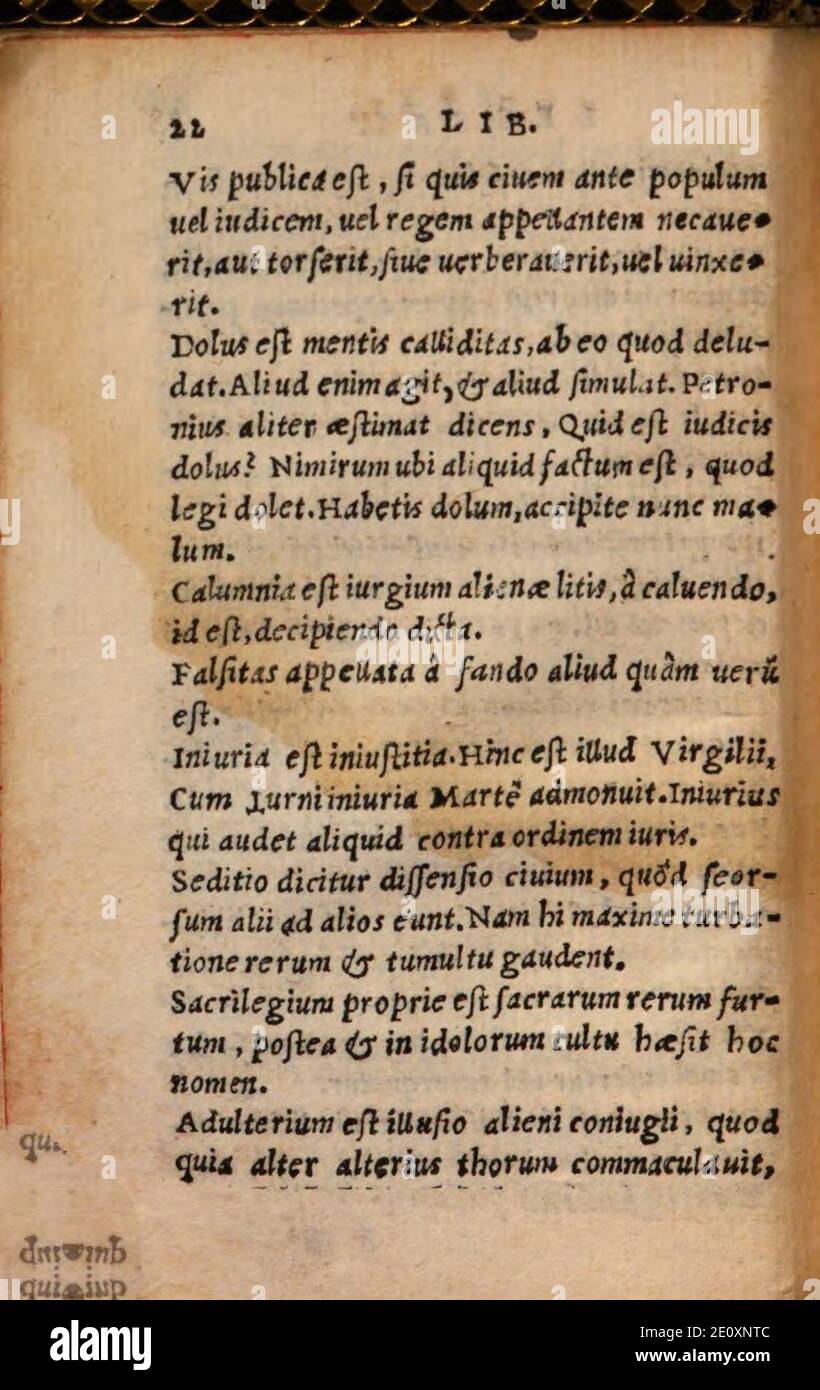 22 LIB.
Vis publica est, si quis ciuem ante populum
uel iudicem, uel regem appellantem necaue-
rit, aut torserit, siue uerberauerit, uel uinxe-
rit.
Dolus est mentis calliditas, ab eo quod delu-
dat. Aliud enim agit, & aliud simulat. Petro-
nius aliter æstimat dicens, Quid est iudicis
dolus? Nimirum ubi aliquid factum est, quod
legi dolet. Habetis dolum, accipite nunc ma-
lum.
Calumnia est iurgium alienæ litis, à caluendo,
id est, decipiendo dicta.
Falsitas appellata à fando aliud quàm uerũ
est.
Iniuria est iniustitia. Hinc est illud Virgilii,
Cum Turni iniuria Martẽ admonuit. Iniurius
qui audet aliquid contra ordinem iuris.
Seditio dicitur dissensio ciuium, quòd seor-
sum alii ad alios eunt. Nam hi maxime turba-
tione rerum & tumultu gaudent.
Sacrilegium proprie est sacrarum rerum fur-
tum, postea & in idolorum cultu hæsit hoc
nomen.
Adulterium est illusio alieni coniugii, quod
quia alter alterius thorum commaculauit,
qu.
alamy
alamy
Image ID: 2E0XNTC
www.alamy.com